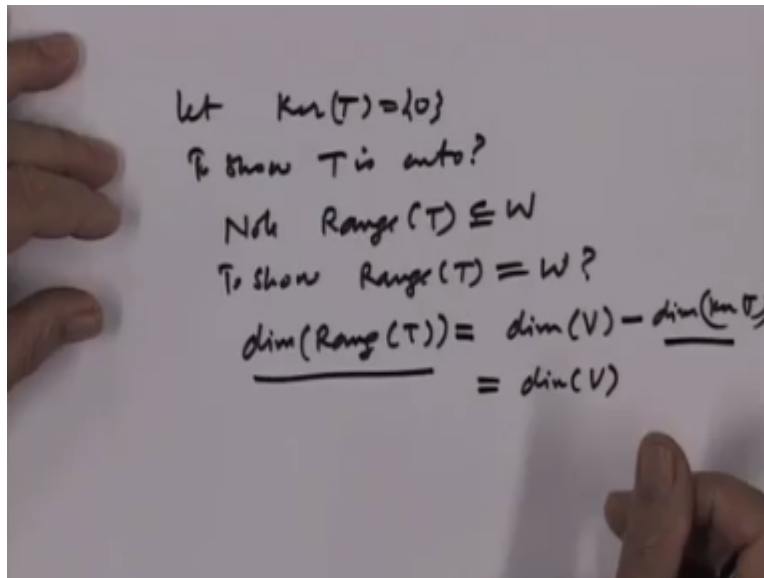 Let Ker(T)={0}
To show T is onto?
Note Range(T) ⊆ W
To show Range(T) = W?
dim(Range(T)) = dim(V) - dim(Ker T)
= dim(V)